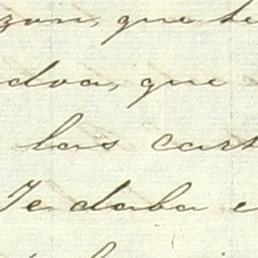 zon, que te
dva, que
las cart
Te daba e